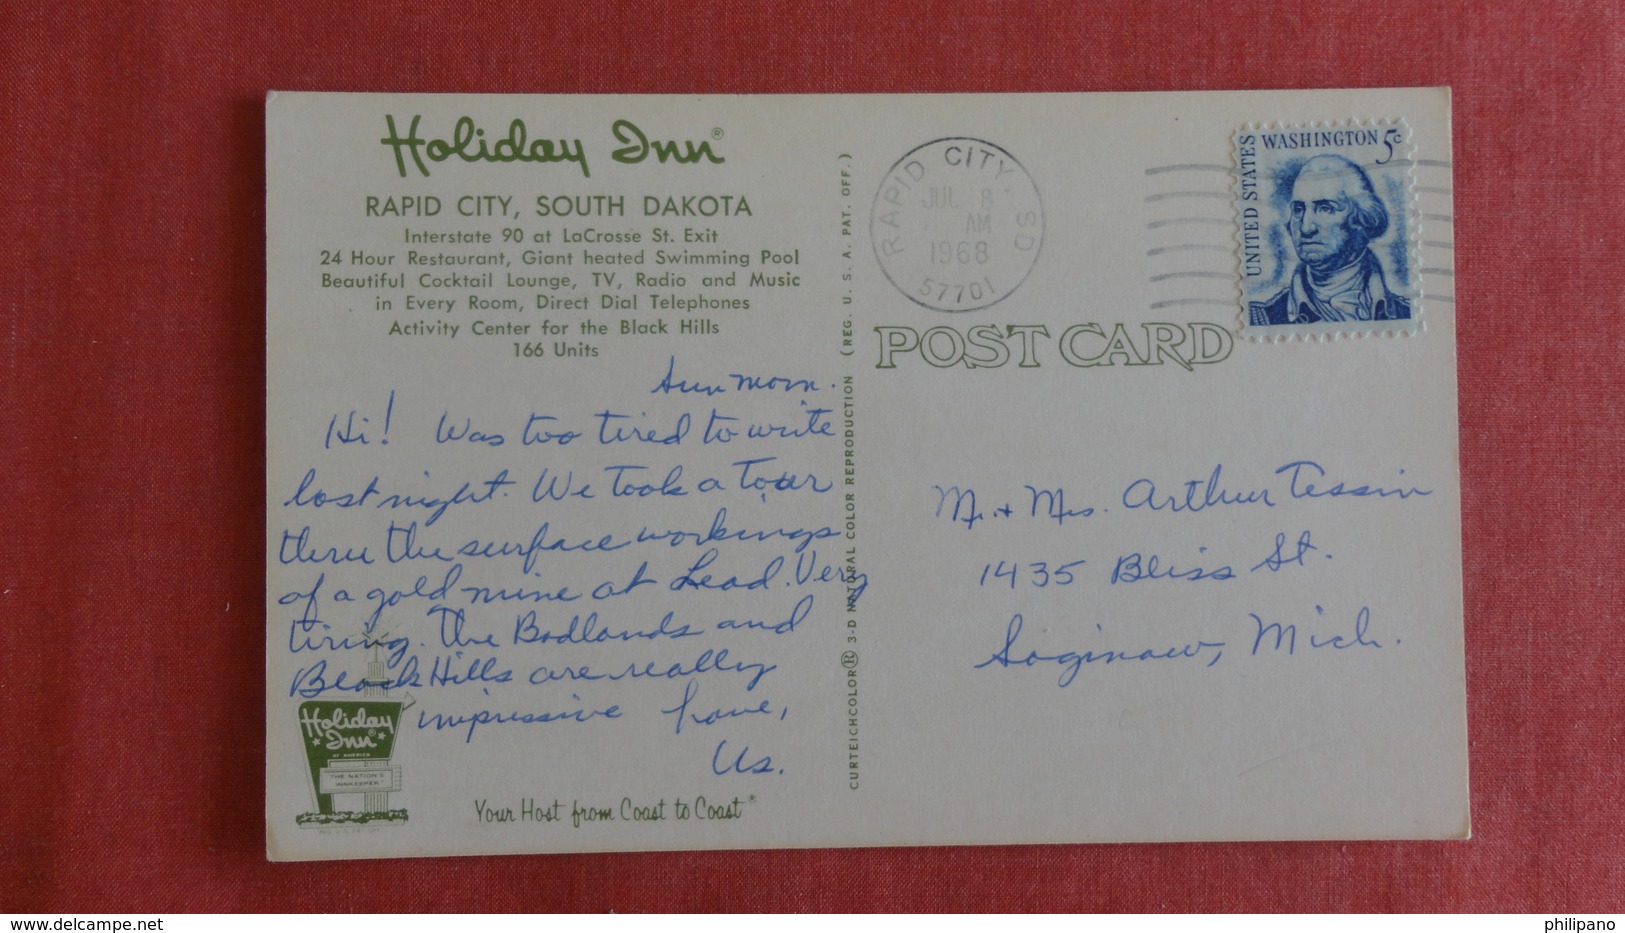 Holiday Inn®
RAPID CITY, SOUTH DAKOTA
Interstate 90 at LaCrosse St. Exit
24 Hour Restaurant, Giant heated Swimming Pool
Beautiful Cocktail Lounge, TV, Radio and Music
in Every Room, Direct Dial Telephones
Activity Center for the Black Hills
166 Units
Sun morn.
Hi! Was too tired to write
last night. We took a tour
thru the surface workings
of a gold mine at Lead. Very
tiring. The Badlands and
Black Hills are really
impressive
Us.
Holiday
Inn®
OF AMERICA
THE NATION'S
INNKEEPER
Your Host from Coast to Coast®
CURTEICHCOLOR® 3-D NATURAL COLOR REPRODUCTION (REG. U. S. A. PAT. OFF.)
RAPID CITY SD
JUL 8
AM
1968
57701
UNITED STATES
WASHINGTON 5c
POST CARD
Mr. + Mrs. Arthur Tessin
1435 Bliss St.
Saginaw, Mich.
delcampe.net
philipano